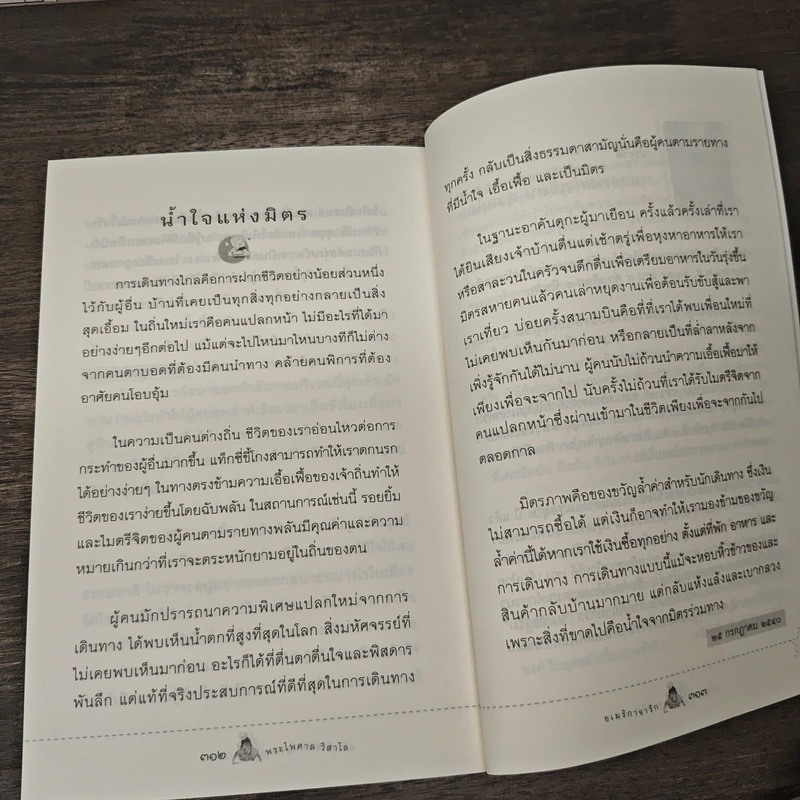 น้ำใจแห่งมิตร
การเดินทางไกลคือการฝากชีวิตอย่างน้อยส่วนหนึ่ง
ไว้กับผู้อื่น บ้านที่เคยเป็นทุกสิ่งทุกอย่างกลายเป็นสิ่ง
สุดเอื้อม ในถิ่นใหม่เราคือคนแปลกหน้า ไม่มีอะไรที่ได้มา
อย่างง่ายๆอีกต่อไป แม้แต่จะไปไหนมาไหนบางทีก็ไม่ต่าง
จากคนตาบอดที่ต้องมีคนนำทาง คล้ายคนพิการที่ต้อง
อาศัยคนโอบอุ้ม
ในความเป็นคนต่างถิ่น ชีวิตของเราอ่อนไหวต่อการ
กระทำของผู้อื่นมากขึ้น แท็กซี่ขี้โกงสามารถทำให้เราตกนรก
ได้อย่างง่ายๆ ในทางตรงข้ามความเอื้อเฟื้อของเจ้าถิ่นก็ทำให้
ชีวิตของเราง่ายขึ้นโดยฉับพลัน ในสถานการณ์เช่นนี้ รอยยิ้ม
และไมตรีจิตของผู้คนตามรายทางพลันมีคุณค่าและความ
หมายเกินกว่าที่เราจะตระหนักยามอยู่ในถิ่นของตน
ผู้คนมักปรารถนาความพิเศษแปลกใหม่จากการ
เดินทาง ได้พบเห็นน้ำตกที่สูงที่สุดในโลก สิ่งมหัศจรรย์ที่
ไม่เคยพบเห็นมาก่อน อะไรก็ได้ที่ตื่นตาตื่นใจและพิสดาร
พันลึก แต่แท้ที่จริงประสบการณ์ที่ดีที่สุดในการเดินทาง
๓๑๒ พระไพศาล วิสาโล
ทุกครั้ง กลับเป็นสิ่งธรรมดาสามัญนั่นคือผู้คนตามรายทาง
ที่มีน้ำใจ เอื้อเฟื้อ และเป็นมิตร
ในฐานะอาคันตุกะผู้มาเยือน ครั้งแล้วครั้งเล่าที่เรา
ได้ยินเสียงเจ้าบ้านตื่นแต่เช้าตรู่เพื่อหุงหาอาหารให้เรา
หรือสาละวนในครัวจนดึกดื่นเพื่อเตรียมอาหารในวันรุ่งขึ้น
มิตรสหายคนแล้วคนเล่าหยุดงานเพื่อต้อนรับขับสู้และพา
เราเที่ยว บ่อยครั้งสนามบินคือที่ที่เราได้พบเพื่อนใหม่ที่
ไม่เคยพบเห็นกันมาก่อน หรือกลายเป็นที่ล่ำลาหลังจาก
เพิ่งรู้จักกันได้ไม่นาน ผู้คนนับไม่ถ้วนนำความเอื้อเฟื้อมาให้
เพียงเพื่อจะจากไป นับครั้งไม่ถ้วนที่เราได้รับไมตรีจิตจาก
คนแปลกหน้าซึ่งผ่านเข้ามาในชีวิตเพียงเพื่อจะจากกันไป
ตลอดกาล
มิตรภาพคือของขวัญล้ำค่าสำหรับนักเดินทาง ซึ่งเงิน
ไม่สามารถซื้อได้ แต่เงินก็อาจทำให้เรามองข้ามของขวัญ
ล้ำค่านี้ได้หากเราใช้เงินซื้อทุกอย่าง ตั้งแต่ที่พัก อาหาร และ
การเดินทาง การเดินทางแบบนี้แม้จะหอบหิ้วข้าวของและ
สินค้ากลับบ้านมากมาย แต่กลับแห้งแล้งและเบากลวง
เพราะสิ่งที่ขาดไปคือน้ำใจจากมิตรร่วมทาง
๒๕ กรกฎาคม ๒๕๔๐
อเมริกาจาริก ๓๑๓